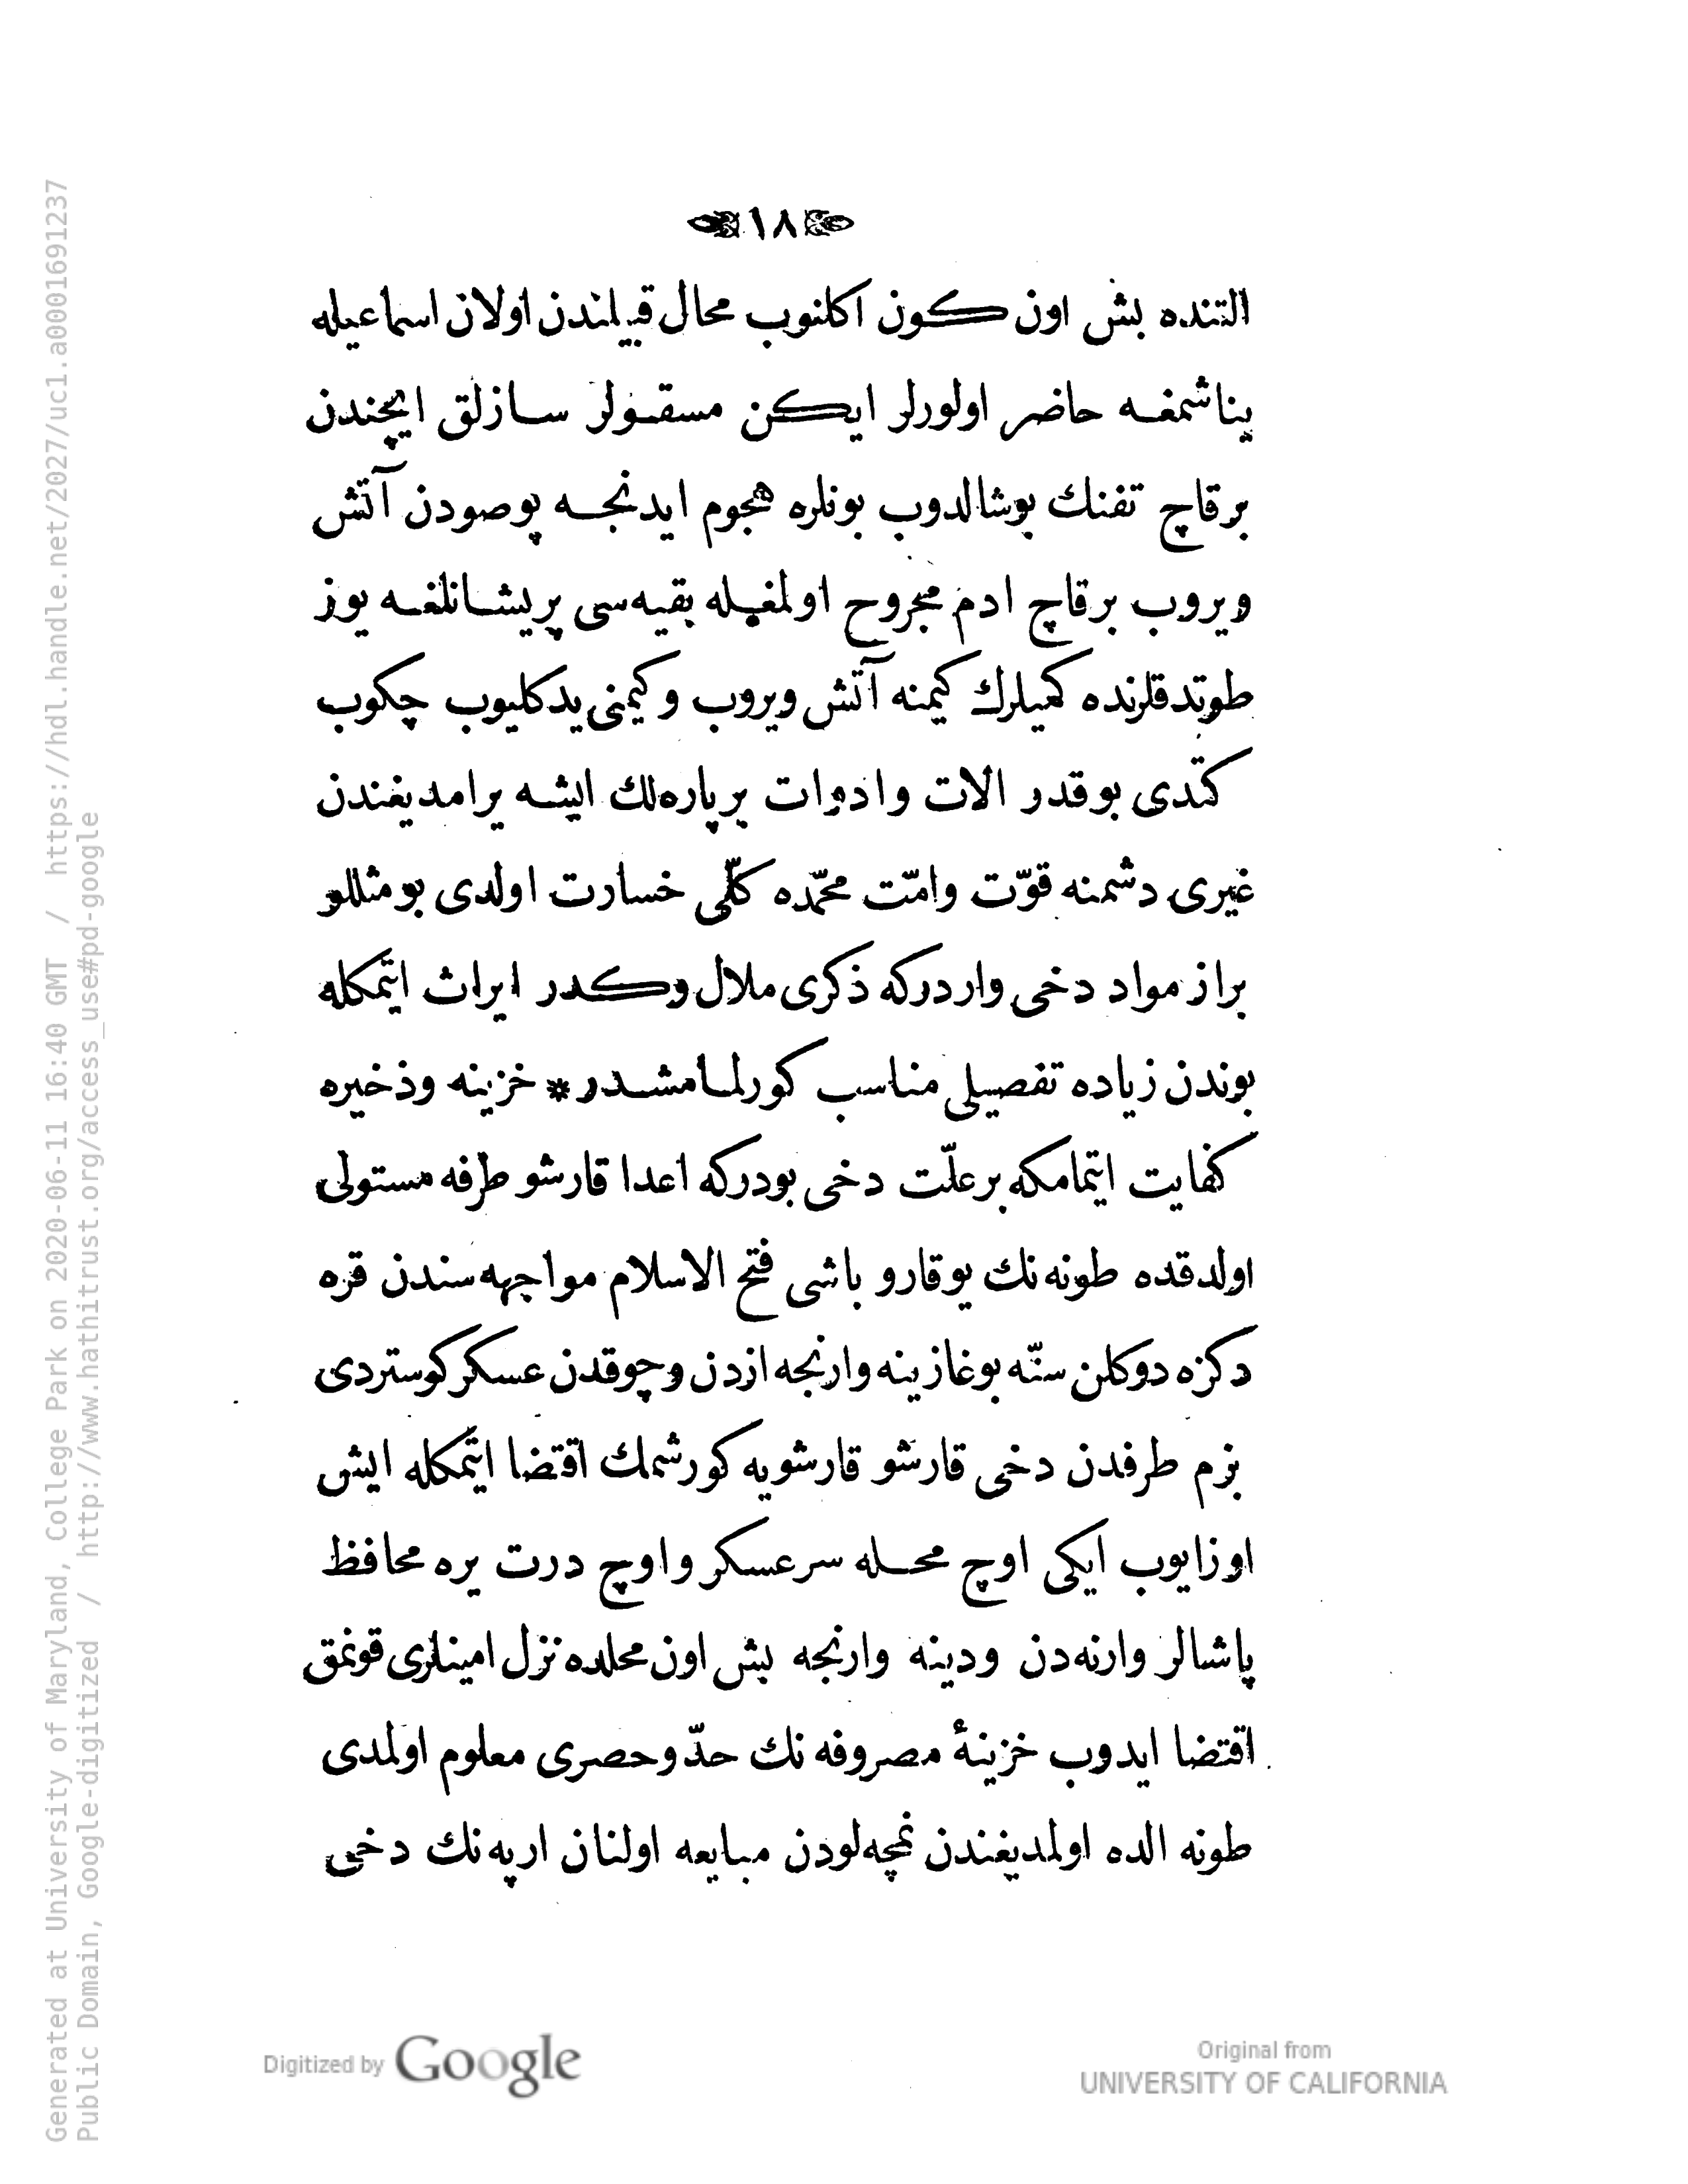 ١٨
التنده بش اون كون اكلنوب محال قبيلندن اولان اسماعيله
يناشمغه حاضر اولورلر ايكن مسقولر سازلق ايچندن
برقاچ تفنك بوشالدوب بونلره هجوم ايدنجه پوصودن آتش
ويروب برقاچ ادم مجروح اولمغيله بقيه‌سى پريشانلغه يوز
طوتدقلرنده كميلرك كيمنه آتش ويروب وكيمنى يدكليوب چكوب
كتدى بوقدر الات وادوات برپاره‌لك ايشه يرامديغندن
غيرى دشمنه قوّت وامّت محمّده كلّى خسارت اولدى بومثللو
براز مواد دخى واردركه ذكرى ملال وكدر ايراث ايتمكله
بوندن زياده تفصيلى مناسب كورلمامشدر * خزينه وذخيره
كفايت ايتمامكه برعلّت دخى بودركه اعدا قارشو طرفه مستولى
اولدقده طونه‌نك يوقارو باشى فتح الاسلام مواجهه‌سندن قره
دكزه دوكلن سنّه بوغازينه وارنجه ازدن وچوقدن عسكر كوستردى
بزم طرفدن دخى قارشو قارشويه كورشمك اقتضا ايتمكله ايش
اوزايوب ايكى اوچ محله سرعسكر واوچ درت يره محافظ
پاشالر وارنه‌دن ودينه وارنجه بش اون محلده نزل امينلرى قونمق
اقتضا ايدوب خزينۀ مصروفه نك حدّ وحصرى معلوم اولمدى
طونه الده اولمديغندن نمچه‌لودن مبايعه اولنان ارپه‌نك دخى
Digitized by Google
Original from
UNIVERSITY OF CALIFORNIA
Generated at University of Maryland, College Park on 2020-06-11 16:40 GMT / https://hdl.handle.net/2027/uc1.a0001691237
Public Domain, Google-digitized / http://www.hathitrust.org/access_use#pd-google